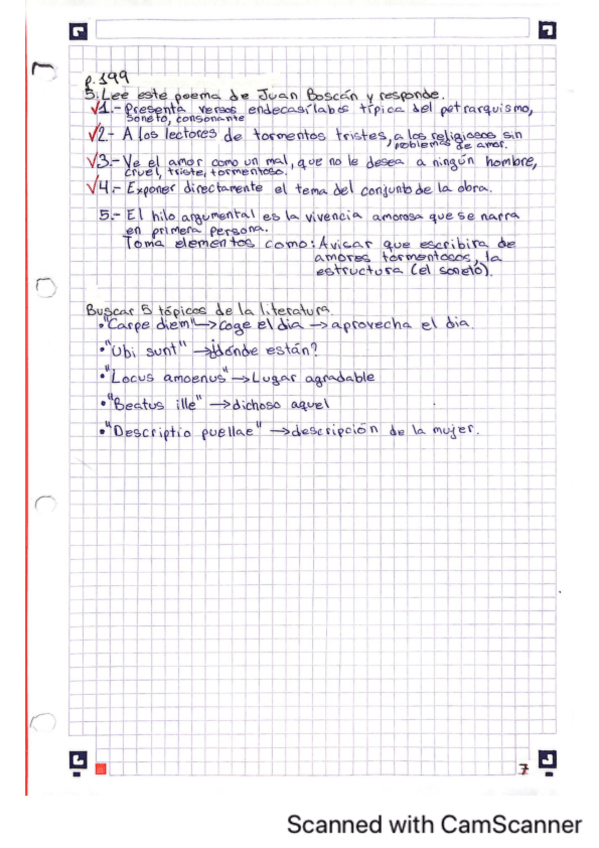 p. 199
5. Lee este poema de Juan Boscán y responde.
√1.- Presenta versos endecasílabos típica del petrarquismo,
soneto, consonante
√2- A los lectores de tormentos tristes, a los religiosos sin
problemas de amor.
√3.- Ve el amor como un mal, que no le desea a ningún hombre,
cruel, triste, tormentoso.
√4.- Exponer directamente el tema del conjunto de la obra.
5.- El hilo argumental es la vivencia amorosa que se narra
en primera persona.
Toma elementos como: Avisar que escribira de
amores tormentosos, la
estructura (el soneto).
Buscar 5 tópicos de la literatura.
• "Carpe diem" → coge el día → aprovecha el dia.
• "Ubi sunt" → ¿dónde están?
• "Locus amoenus" → Lugar agradable
• "Beatus ille" → dichoso aquel
• "Descriptio puellae" → descripción de la mujer.
7
Scanned with CamScanner